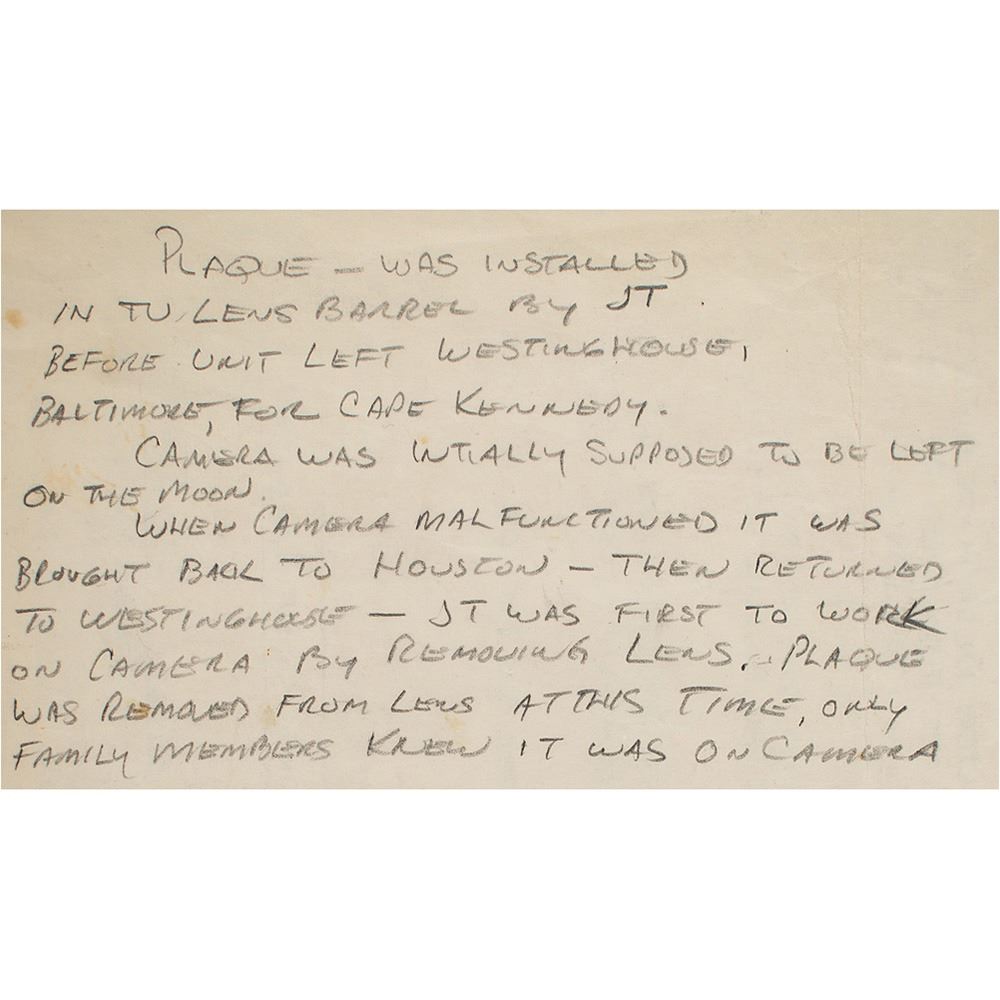 PLAQUE — WAS INSTALLED
IN TV LENS BARREL BY JT.
BEFORE UNIT LEFT WESTINGHOUSE,
BALTIMORE, FOR CAPE KENNEDY.
CAMERA WAS INTIALLY SUPPOSED TO BE LEFT
ON THE MOON.
WHEN CAMERA MALFUNCTIONED IT WAS
BROUGHT BACK TO HOUSTON — THEN RETURNED
TO WESTINGHOUSE — JT WAS FIRST TO WORK
ON CAMERA BY REMOVING LENS. PLAQUE
WAS REMOVED FROM LENS AT THIS TIME, ONLY
FAMILY MEMBERS KNEW IT WAS ON CAMERA